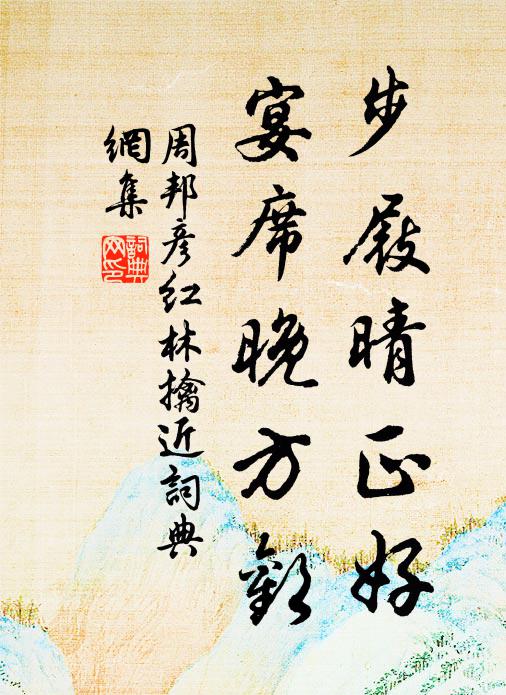 步屐晴正好
宴席晚方歡
周邦彥紅林擒近詞典
網集
詞典網印